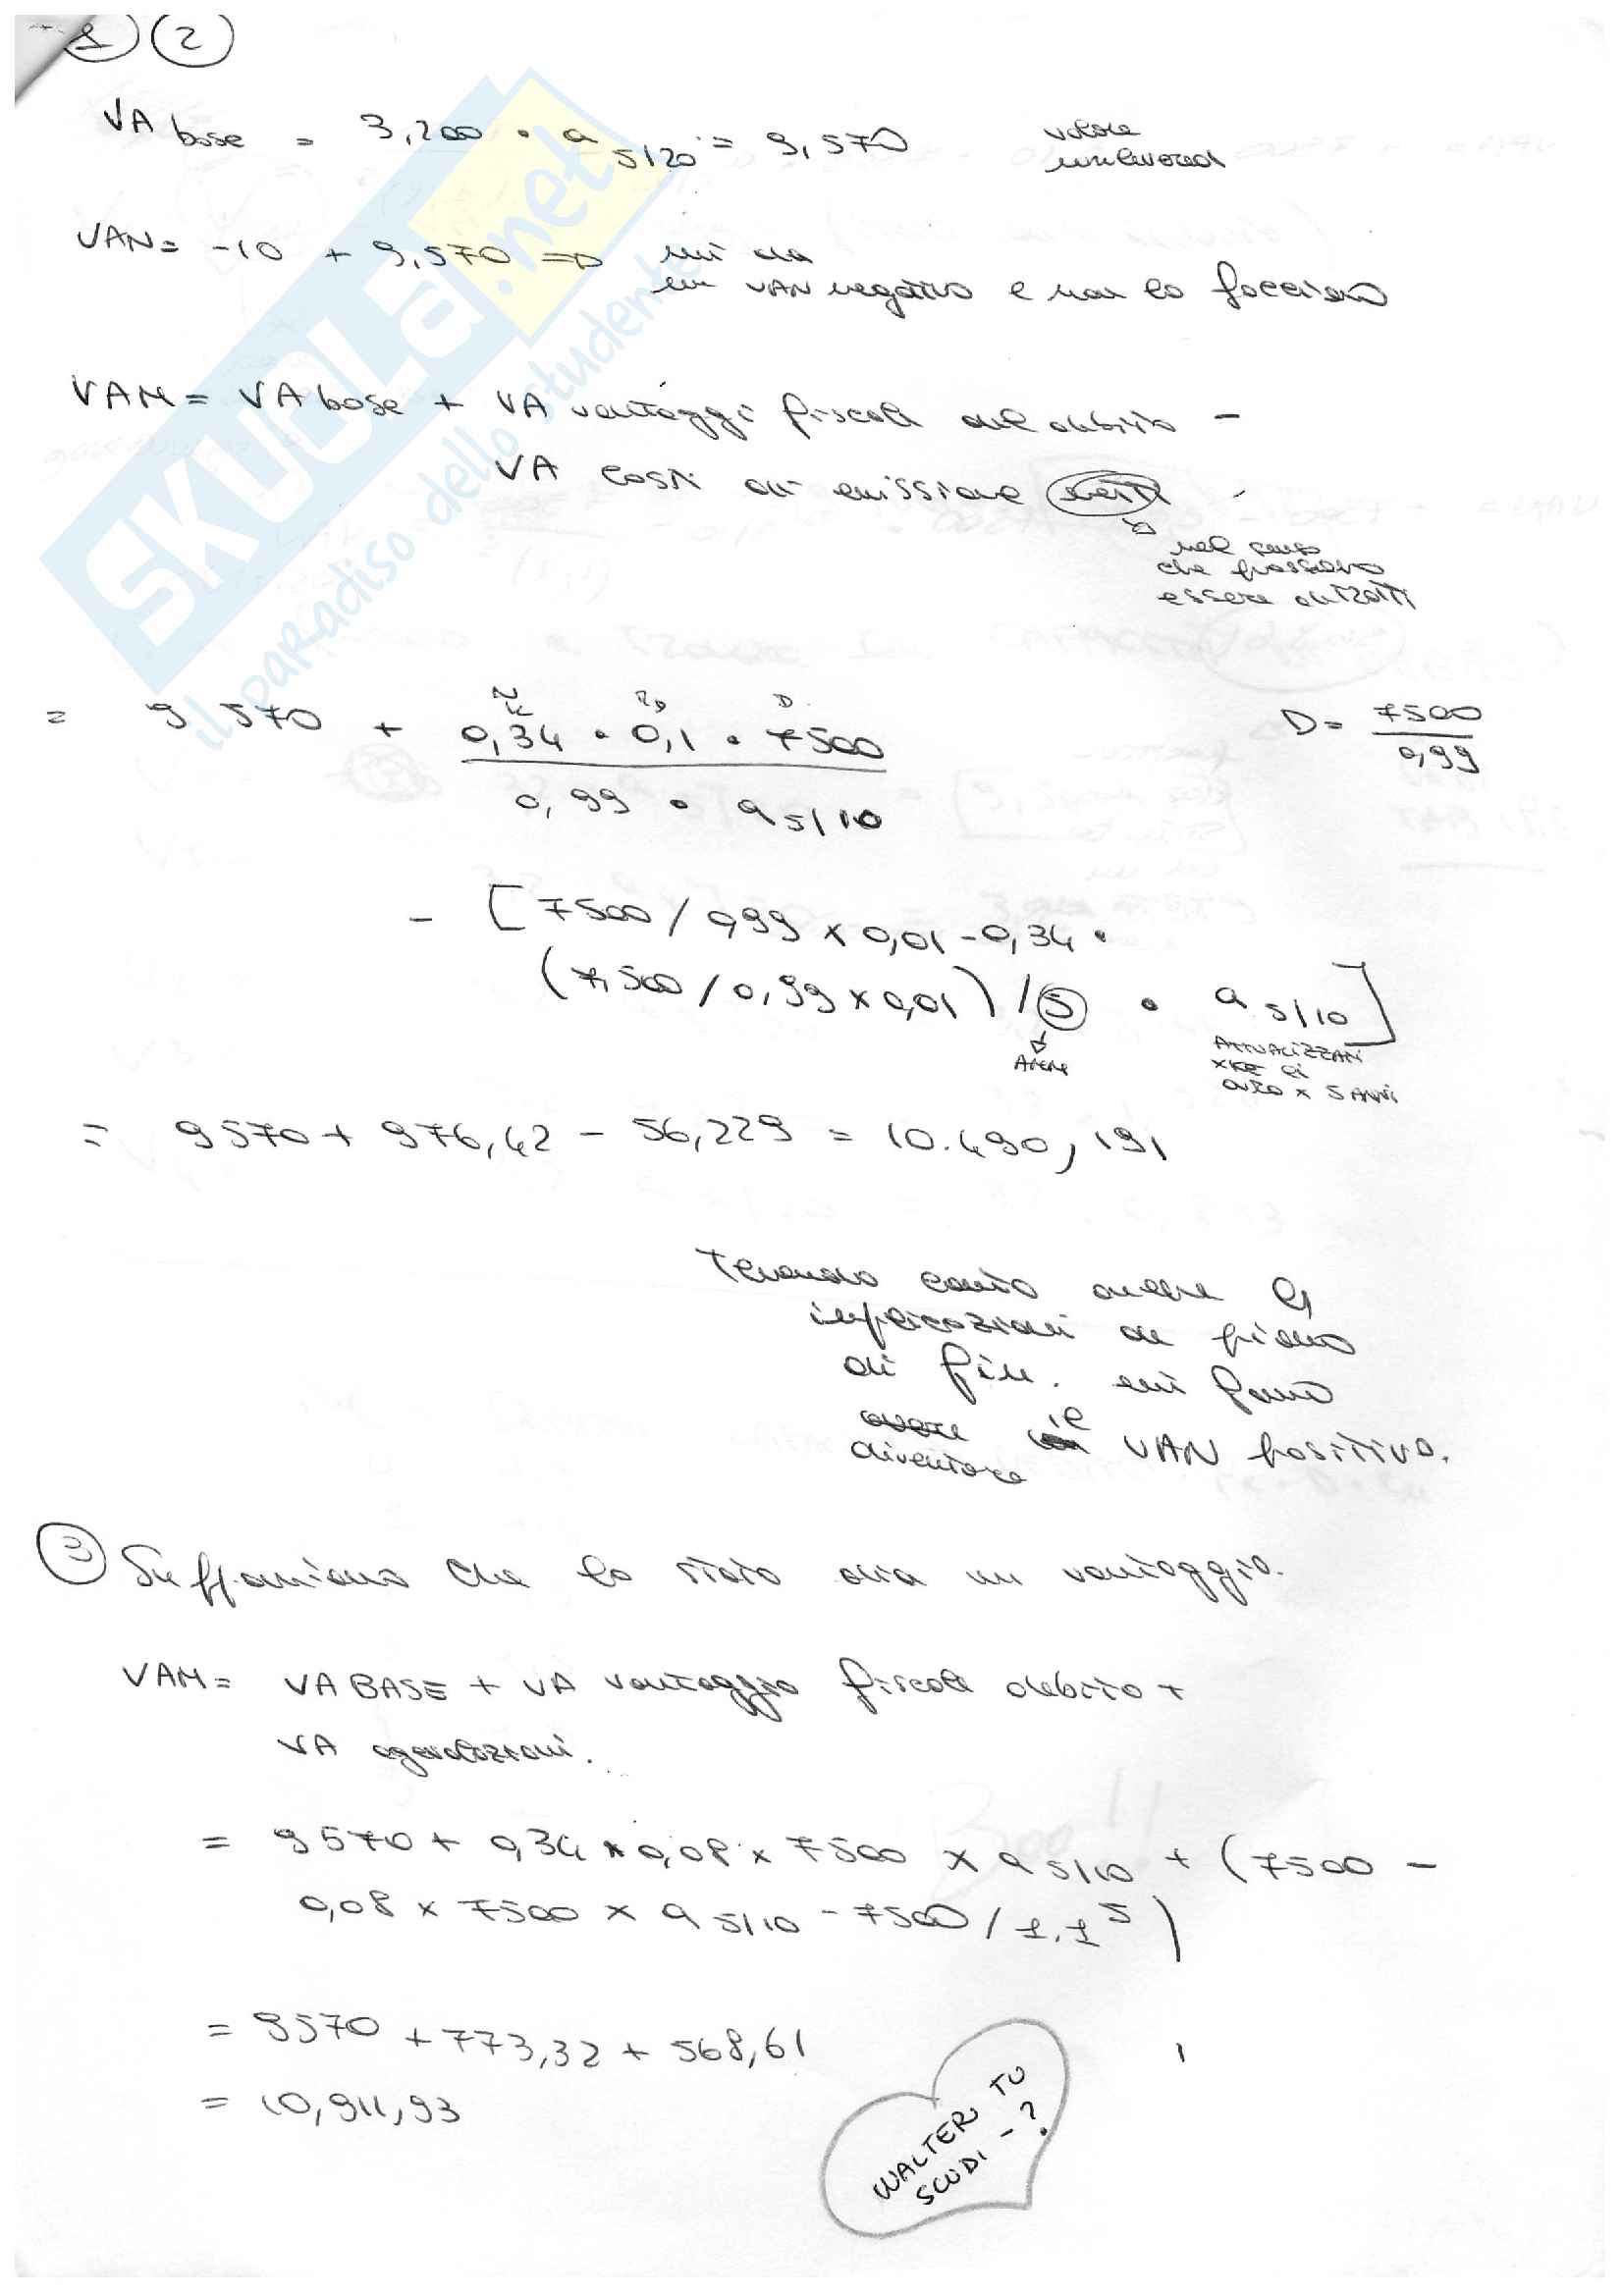 1 2
VA base = 3,200 • a 5/20 = 9,570 valore unlevered
VAN = -10 + 9,570 => mi da
un VAN negativo e non lo facciamo
VAM = VA base + VA vantaggi fiscali del debito -
VA costi di emissione netti
nel senso
che possono
essere dedotti
= 9 570 + 0,34 • 0,1 • 7500 D = 7500
0,99 • a 5/10 0,99
- [7500 / 0,99 x 0,01 - 0,34 •
(7,500 / 0,99 x 0,01) / 5 • a 5/10]
ATTUALIZZARE
x 5 ANNI
= 9570 + 976,42 - 56,229 = 10.490,191
Tenendo conto anche
implicazioni di piano
di fin. mi fanno
diventare il VAN positivo.
3 Supponiamo che lo stato dia un vantaggio.
VAM = VA BASE + VA vantaggio fiscale debito +
VA agevolazioni.
= 9570 + 0,34 x 0,08 x 7500 x a 5/10 + (7500 -
0,08 x 7500 x a 5/10 - 7500 / 1,1^5)
= 9570 + 773,32 + 568,61
= 10,911,93
WALTER TU
SCUDI - ?
SKUOLA.net
il paradiso dello studente